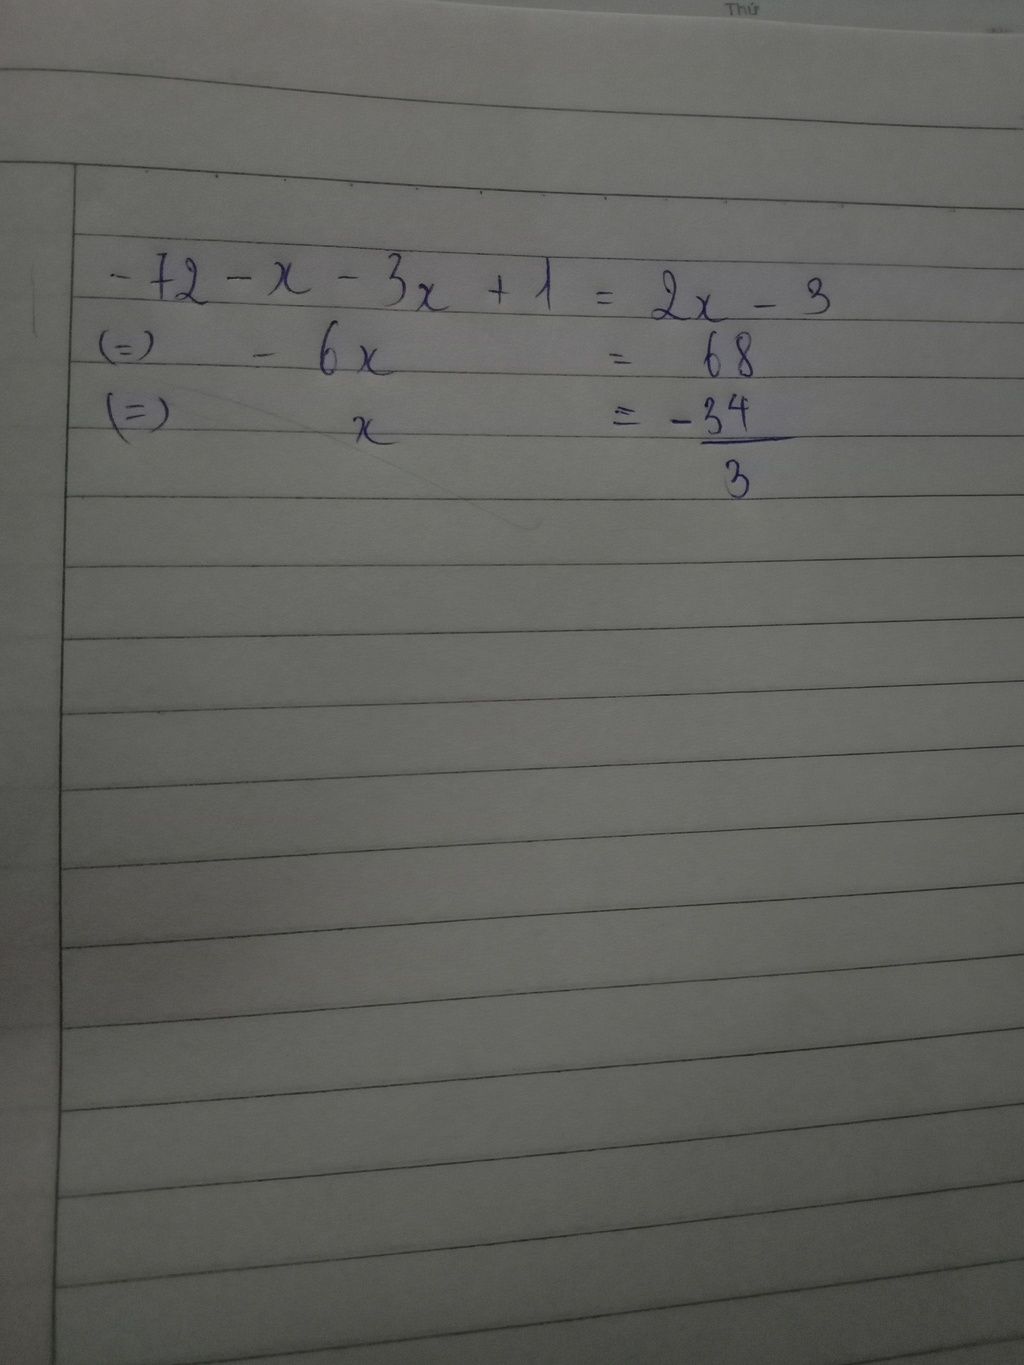 Thứ
-72 - x - 3x + 1 = 2x - 3
(=) - 6x = 68
(=) x = -34
3